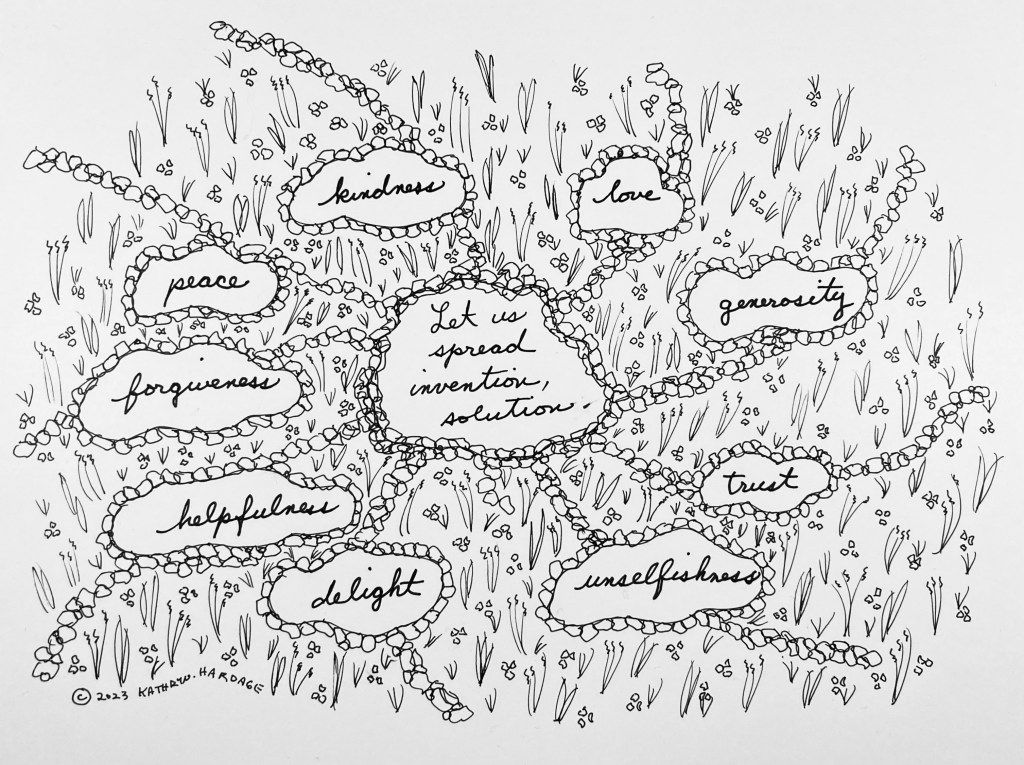 kindness
love
peace
generosity
Let us
spread
invention,
solution.
forgiveness
trust
helpfulness
unselfishness
delight
© 2023 KATHRYN HARDAGE